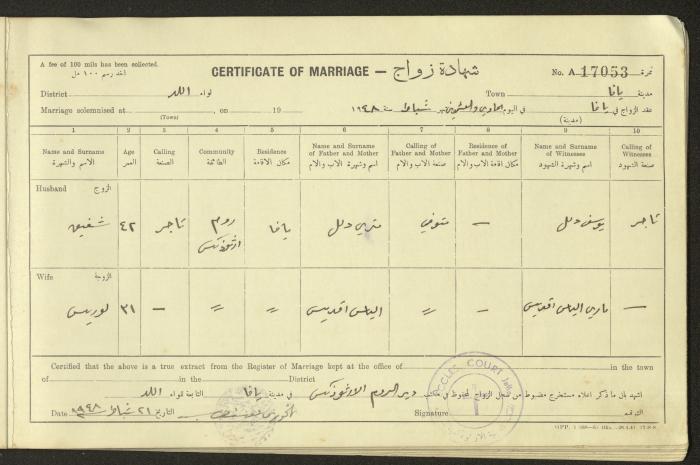 A fee of 100 mils has been collected.
أخذ رسم ١٠٠ مل
CERTIFICATE OF MARRIAGE – شهادة زواج
No. A 17053 نمرة
District لواء اللد Town مدينة يافا
Marriage solemnised at , on 19 عقد الزواج في يافا في اليوم الحادي والعشرين شباط سنة ١٩٤٨
(Town) (مدينة)
1 2 3 4 5 6 7 8 9 10
Name and Surname Age Calling Community Residence Name and Surname of Father and Mother Calling of Father and Mother Residence of Father and Mother Name and Surname of Witnesses Calling of Witnesses
الاسم والشهرة العمر الصنعة الطائفة مكان الاقامة اسم وشهرة الاب والام صنعة الاب والام مكان اقامة الاب والام اسم وشهرة الشهود صنعة الشهود
Husband الزوج
شفيق ٤٢ تاجر روم ارثوذكس يافا متري دلل متوفي – يوسف دلل تاجر
Wife الزوجة
لوريس ٣١ – 〃 〃 الياس اقديس 〃 – ماري الياس اقديس –
Certified that the above is a true extract from the Register of Marriage kept at the office of in the town
of in the District
اشهد بان ما ذكر اعلاه مستخرج مضبوط من سجل الزواج المحفوظ في مكتب دير الروم الارثوذكس في مدينة يافا التابعة للواء اللد
Date التاريخ ٢١ شباط ١٩٤٨ Signature التوقيع
ECCLES. COURT Jaffa